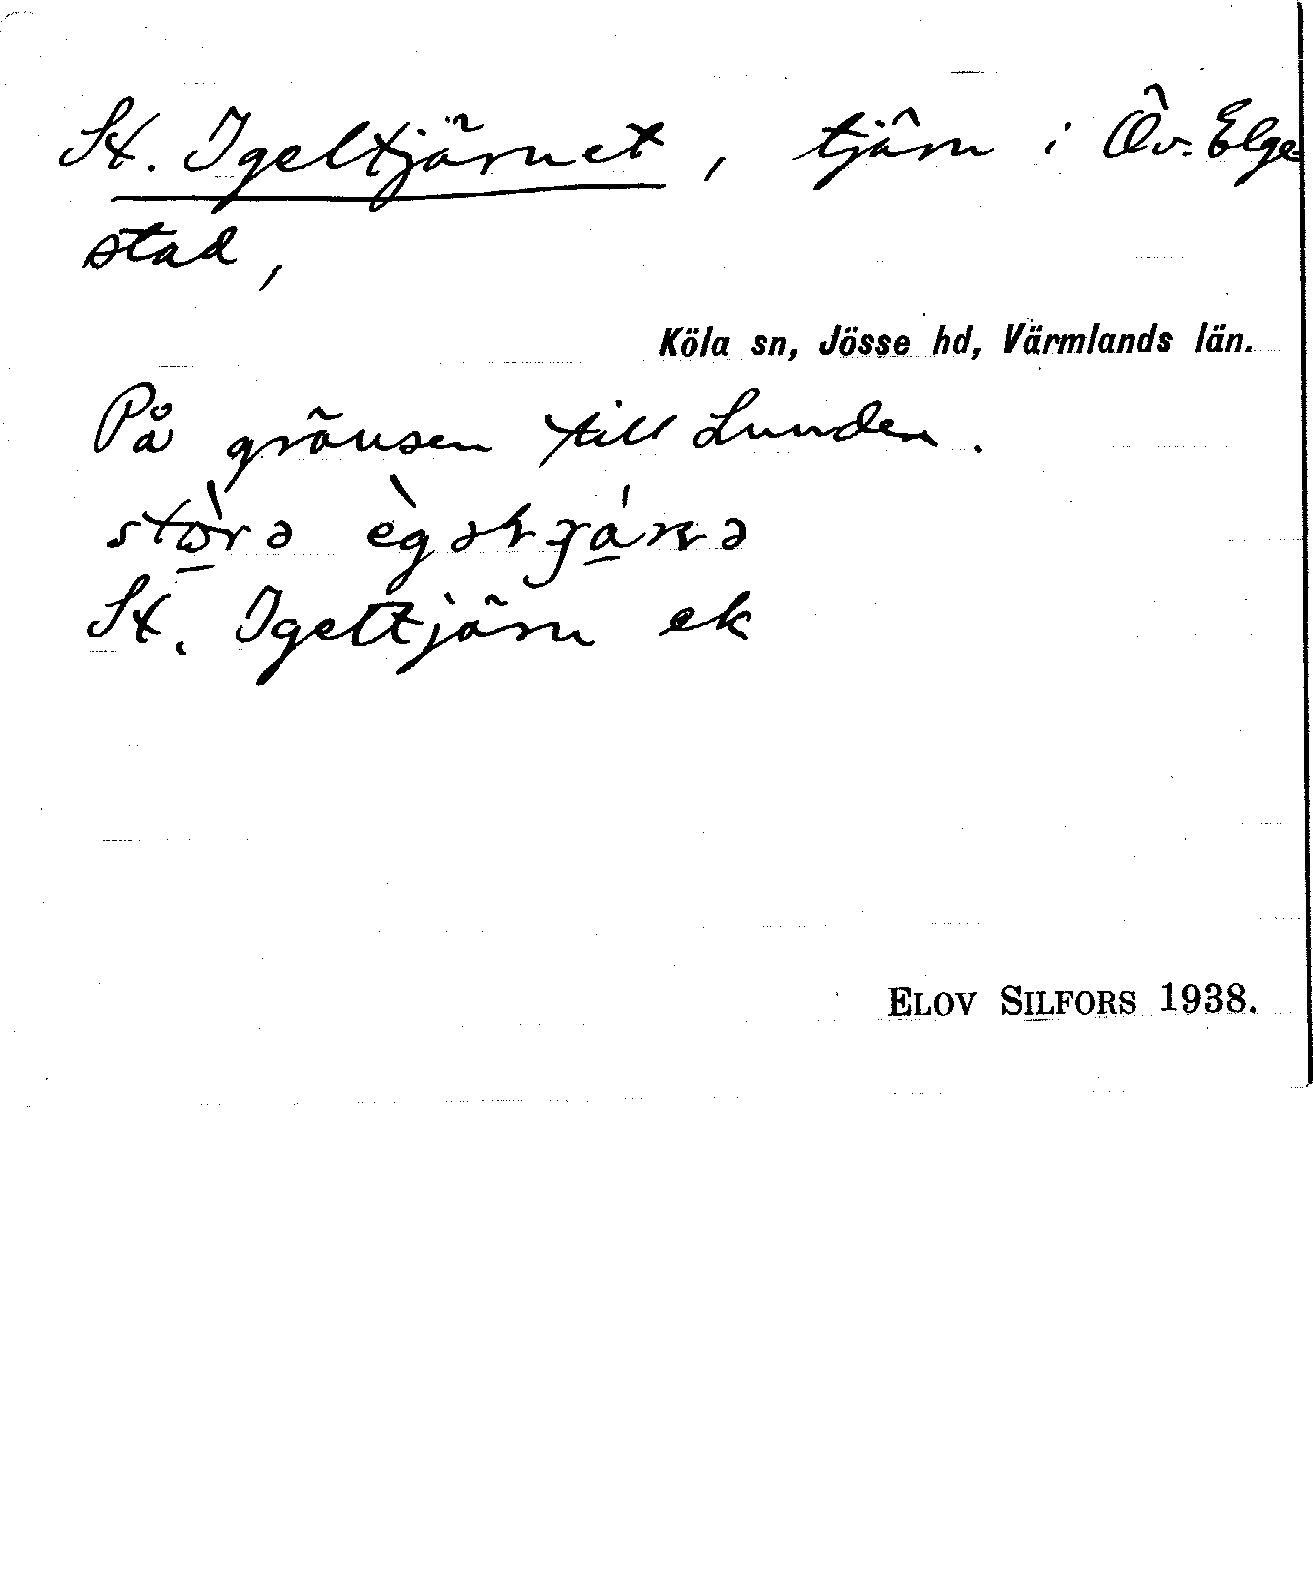 St. Igeltjärnet, tjärn i Öv. Elge-
stad,
Köla sn, Jösse hd, Värmlands län.
På gränsen till Lunden.
St. Igeltjärn ek
ELOV SILFORS 1938.